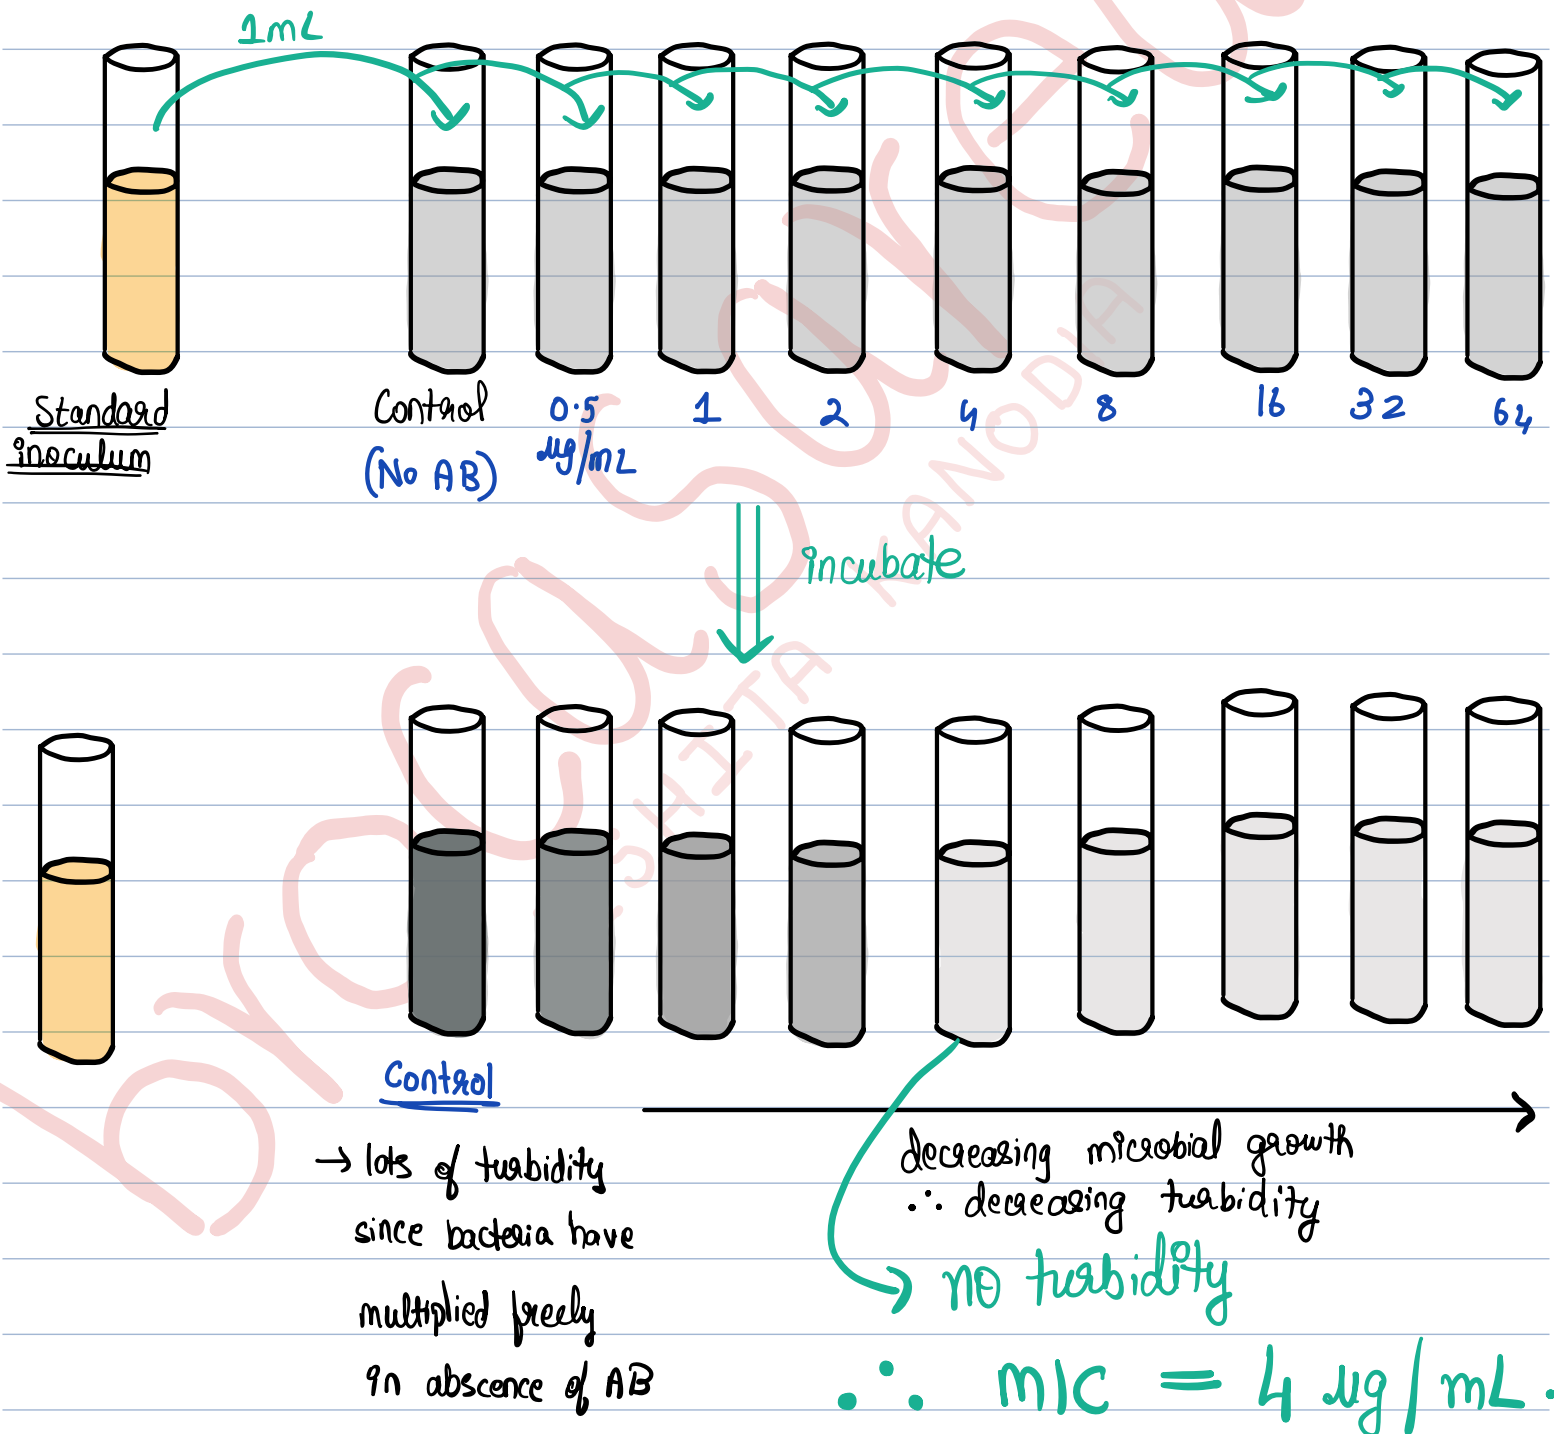 1mL
Standard inoculum
Control (No AB)
0.5 µg/mL
1
2
4
8
16
32
64
incubate
Control
→ lots of turbidity
since bacteria have
multiplied freely
in abscence of AB
decreasing microbial growth
∴ decreasing turbidity
no turbidity
∴ MIC = 4 µg/mL.
KANODIA